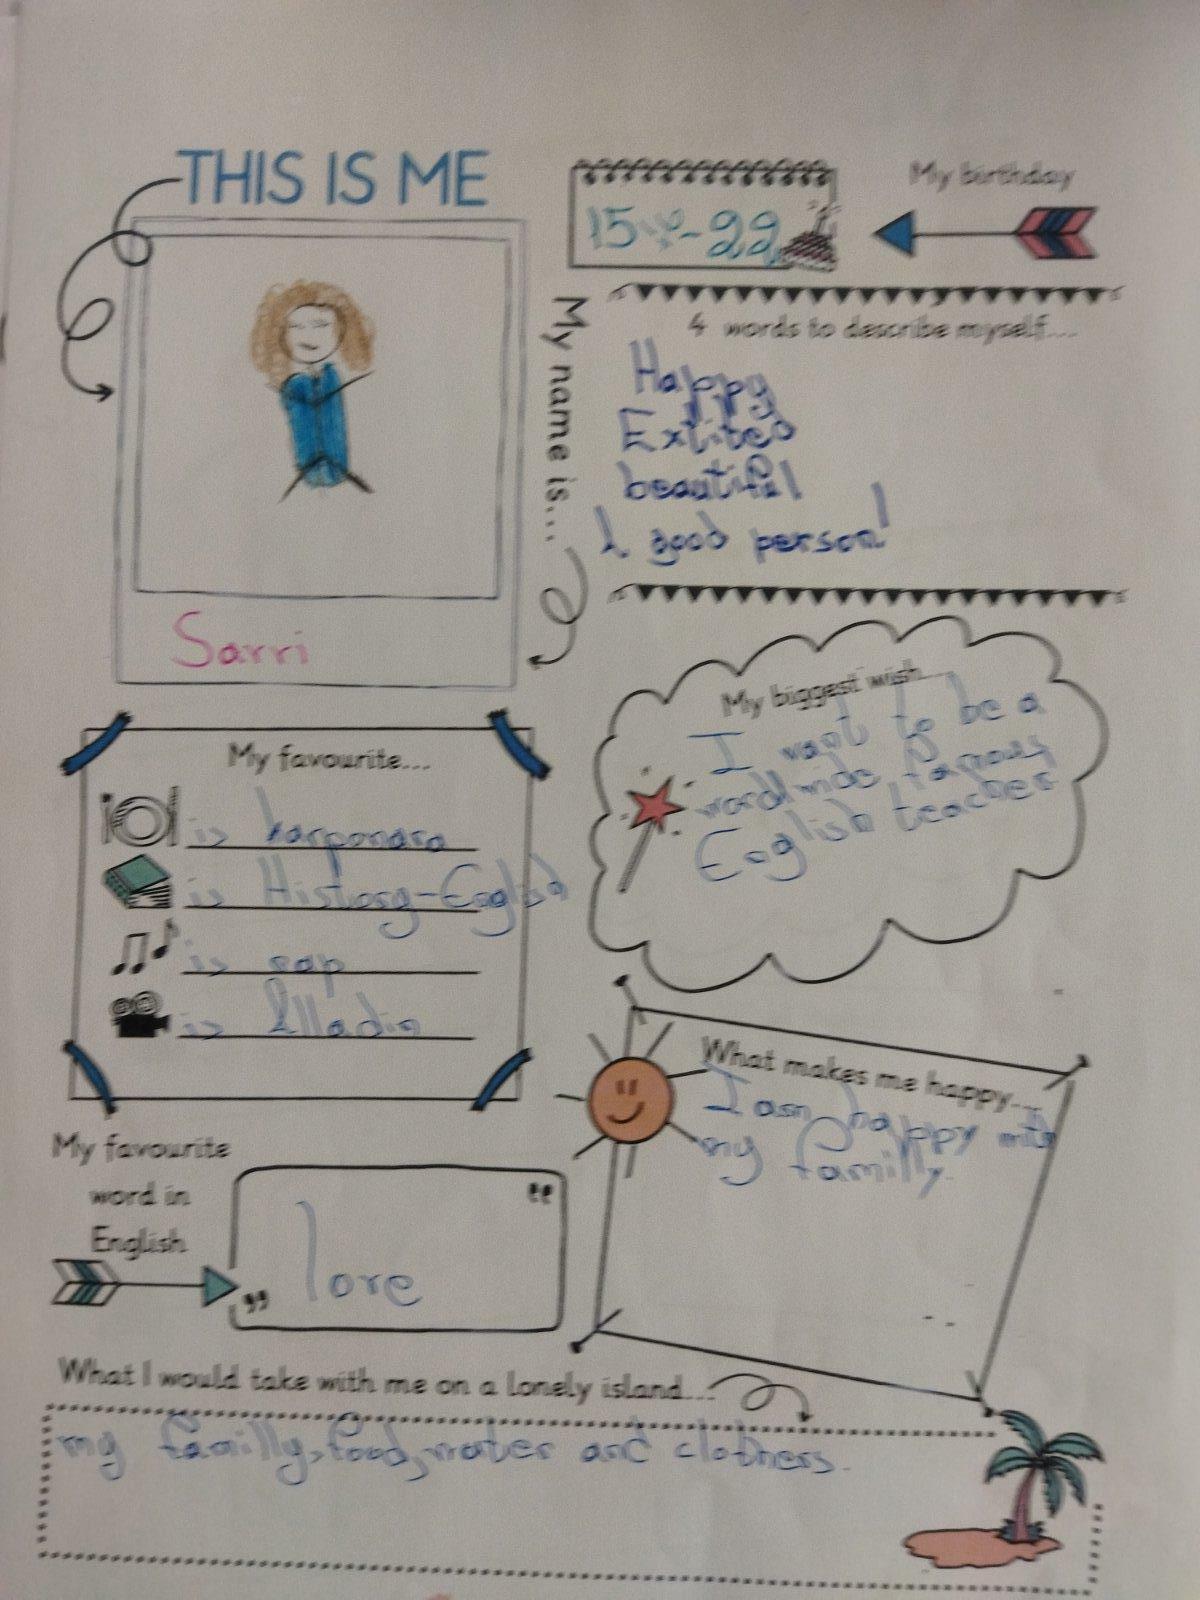 THIS IS ME
My birthday
My name is...
Sarri
4 words to describe myself....
Happy
Extited
beautiful
A good person!
My biggest wish....
I want to be a
wordlwide famous
English teacher
My favourite...
is karponara
is History-English
is rap
is Alladin
What makes me happy....
I am happy with
my familly.
My favourite
word in
English
love
What I would take with me on a lonely island....
my familly, food, water and clothners.